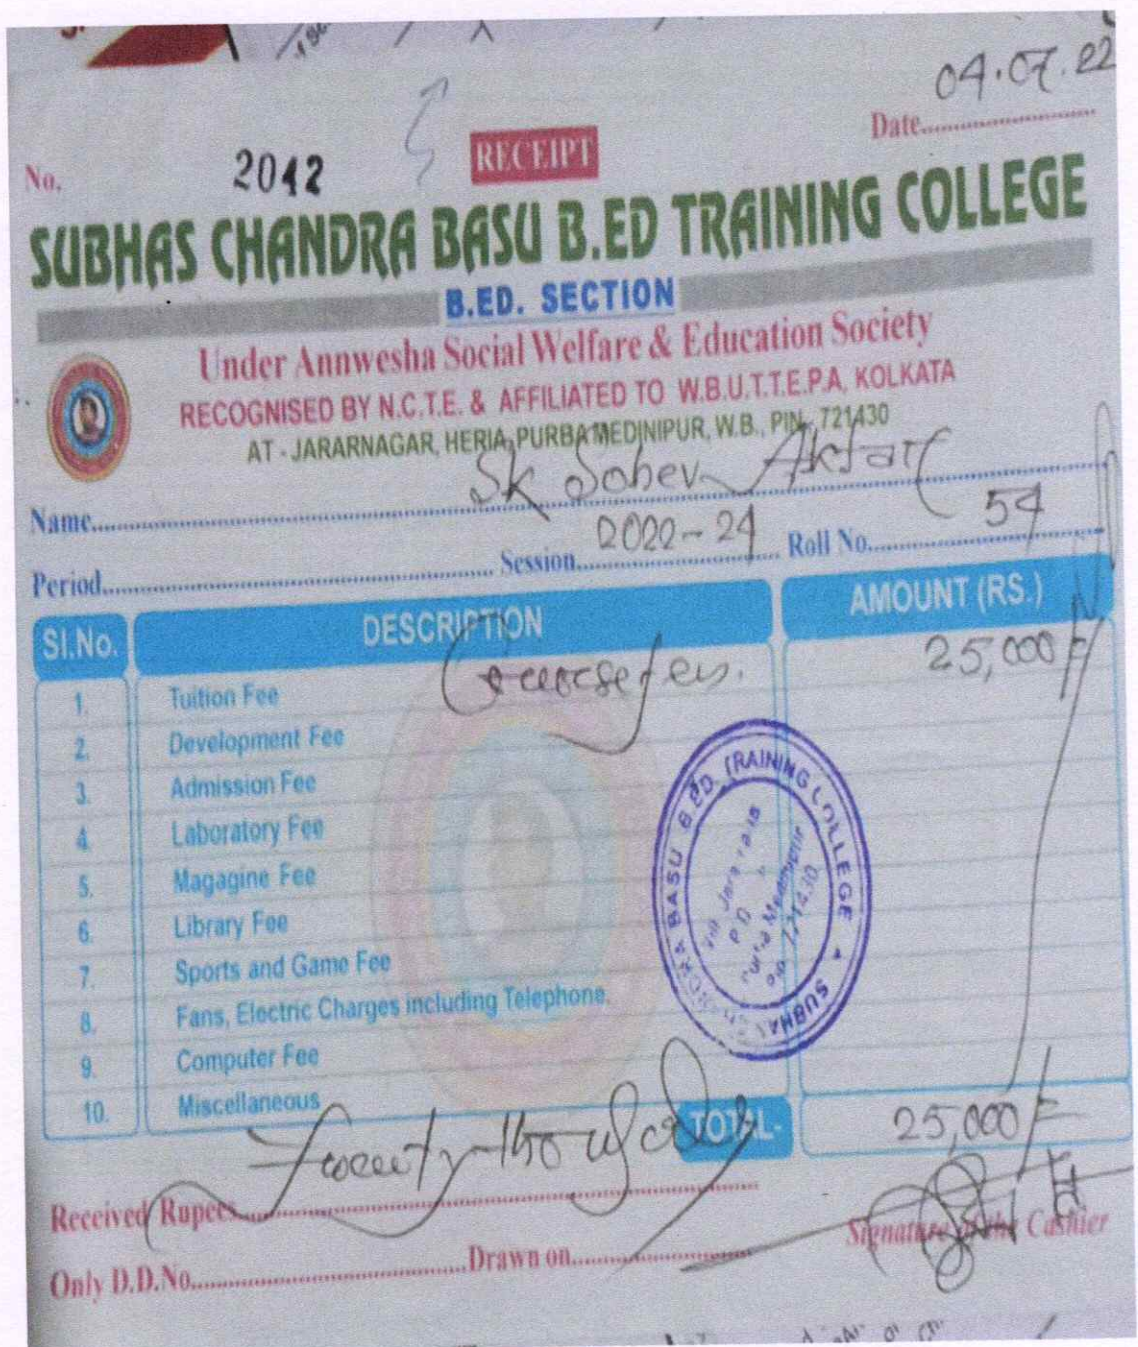 04.07.22
Date
No. 2042 RECEIPT
SUBHAS CHANDRA BASU B.ED TRAINING COLLEGE
B.ED. SECTION
Under Annwesha Social Welfare & Education Society
RECOGNISED BY N.C.T.E. & AFFILIATED TO W.B.U.T.T.E.P.A, KOLKATA
AT - JARARNAGAR, HERIA, PURBA MEDINIPUR, W.B., PIN - 721430
Name Sk Sobev Aktar
Period Session 2022-24 Roll No. 54
Sl.No. DESCRIPTION AMOUNT (RS.)
Course fees. 25,000/-
1. Tuition Fee
2. Development Fee
3. Admission Fee
4. Laboratory Fee
5. Magagine Fee
6. Library Fee
7. Sports and Game Fee
8. Fans, Electric Charges including Telephone.
9. Computer Fee
10. Miscellaneous
SUBHAS CHANDRA BASU B.ED. TRAINING COLLEGE
TOTAL- 25,000/-
Received Rupees Twenty thousand
Signature of the Cashier
Only D.D.No. Drawn on